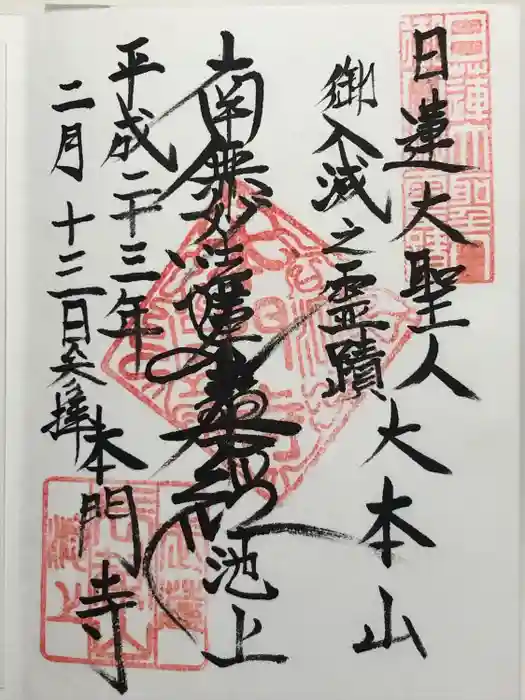 日蓮大聖人
御入滅之霊蹟
大本山
南無妙法蓮華経
池上
本門寺
平成二十三年
二月十三日